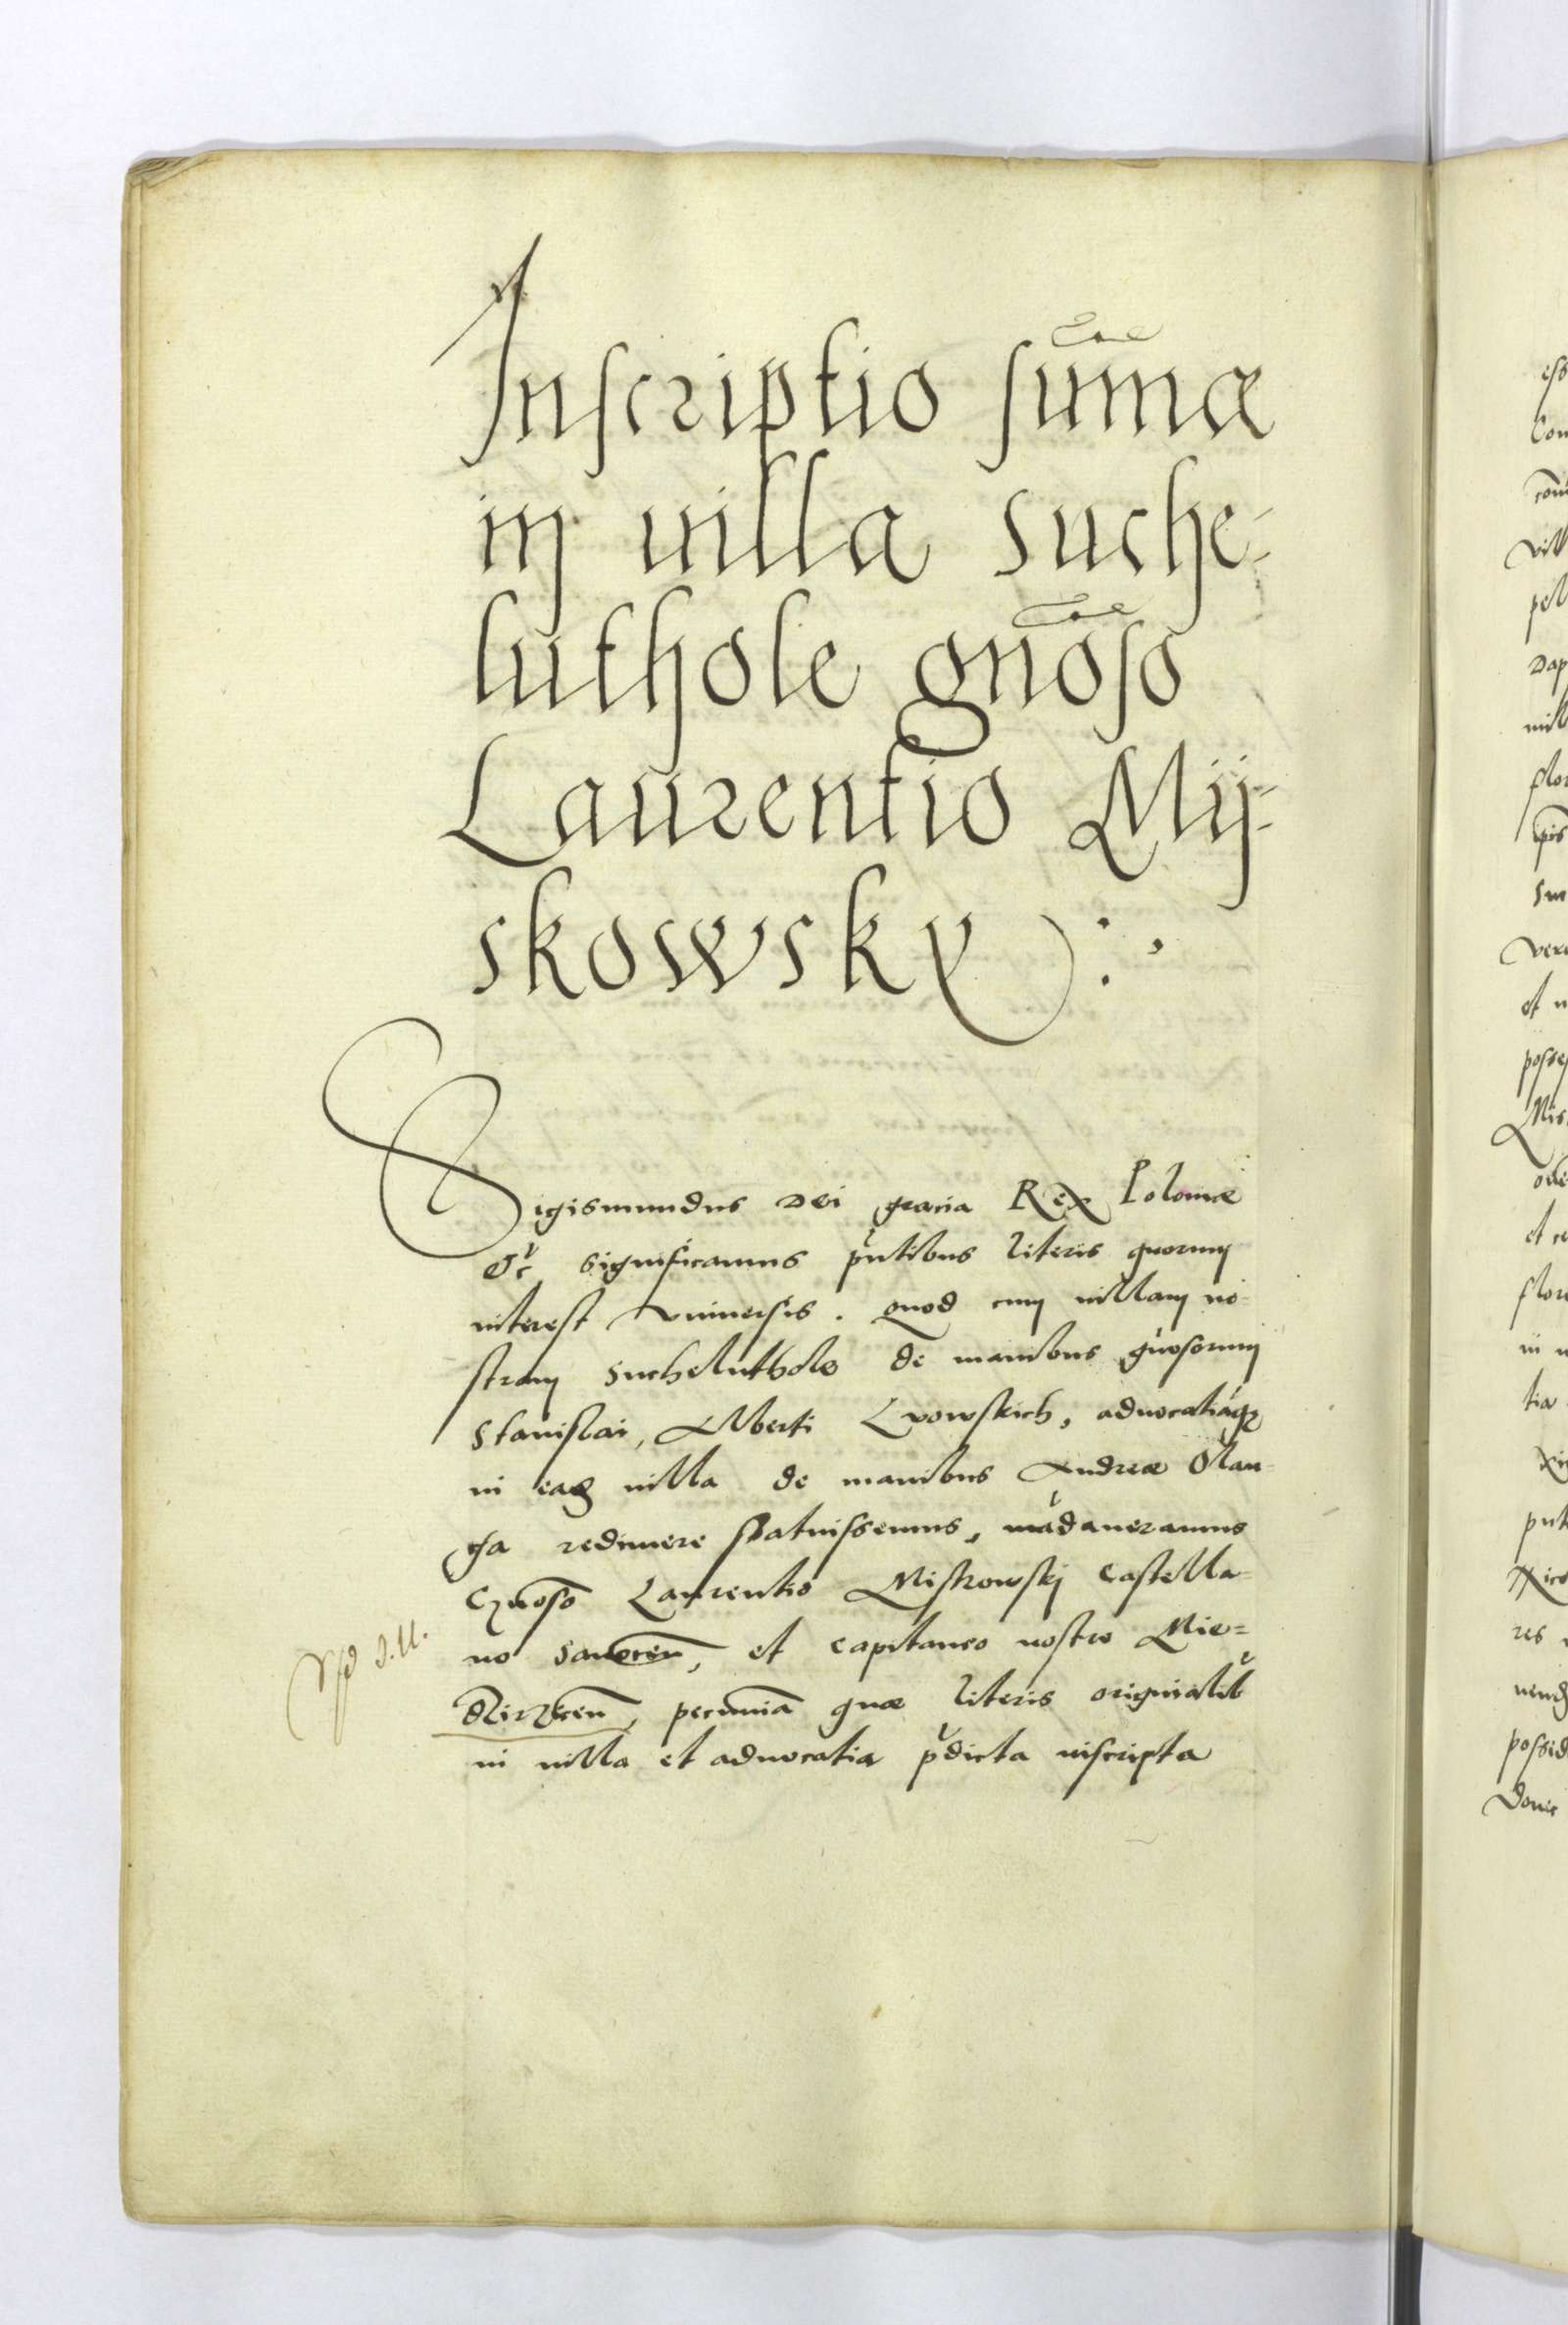 Inscriptio sum̄æ
in uilla Suche-
luthole gnōso
Laurentio Mÿ-
skowsky:
Sigismundus Dei gracia Rex Poloniæ
etc significamus pñtibus literis quorum
interest Vniuersis. Quod cum uillam no-
stram Sucheluthole de manibus gnosorum
Stanislai, Alberti Lvowskich, aduocatiãqz
in eadz uilla de manibus Andreæ Olan-
redimere statuissemus, mãdaueramus
Gnoso Laurentio Miskowskj Castella-
no Sandecen̄, et Capitaneo nostro Mie-
dzirzecen̄, pecuniã quæ literis originalib
in uilla et aduocatia p̃dicta inscripta